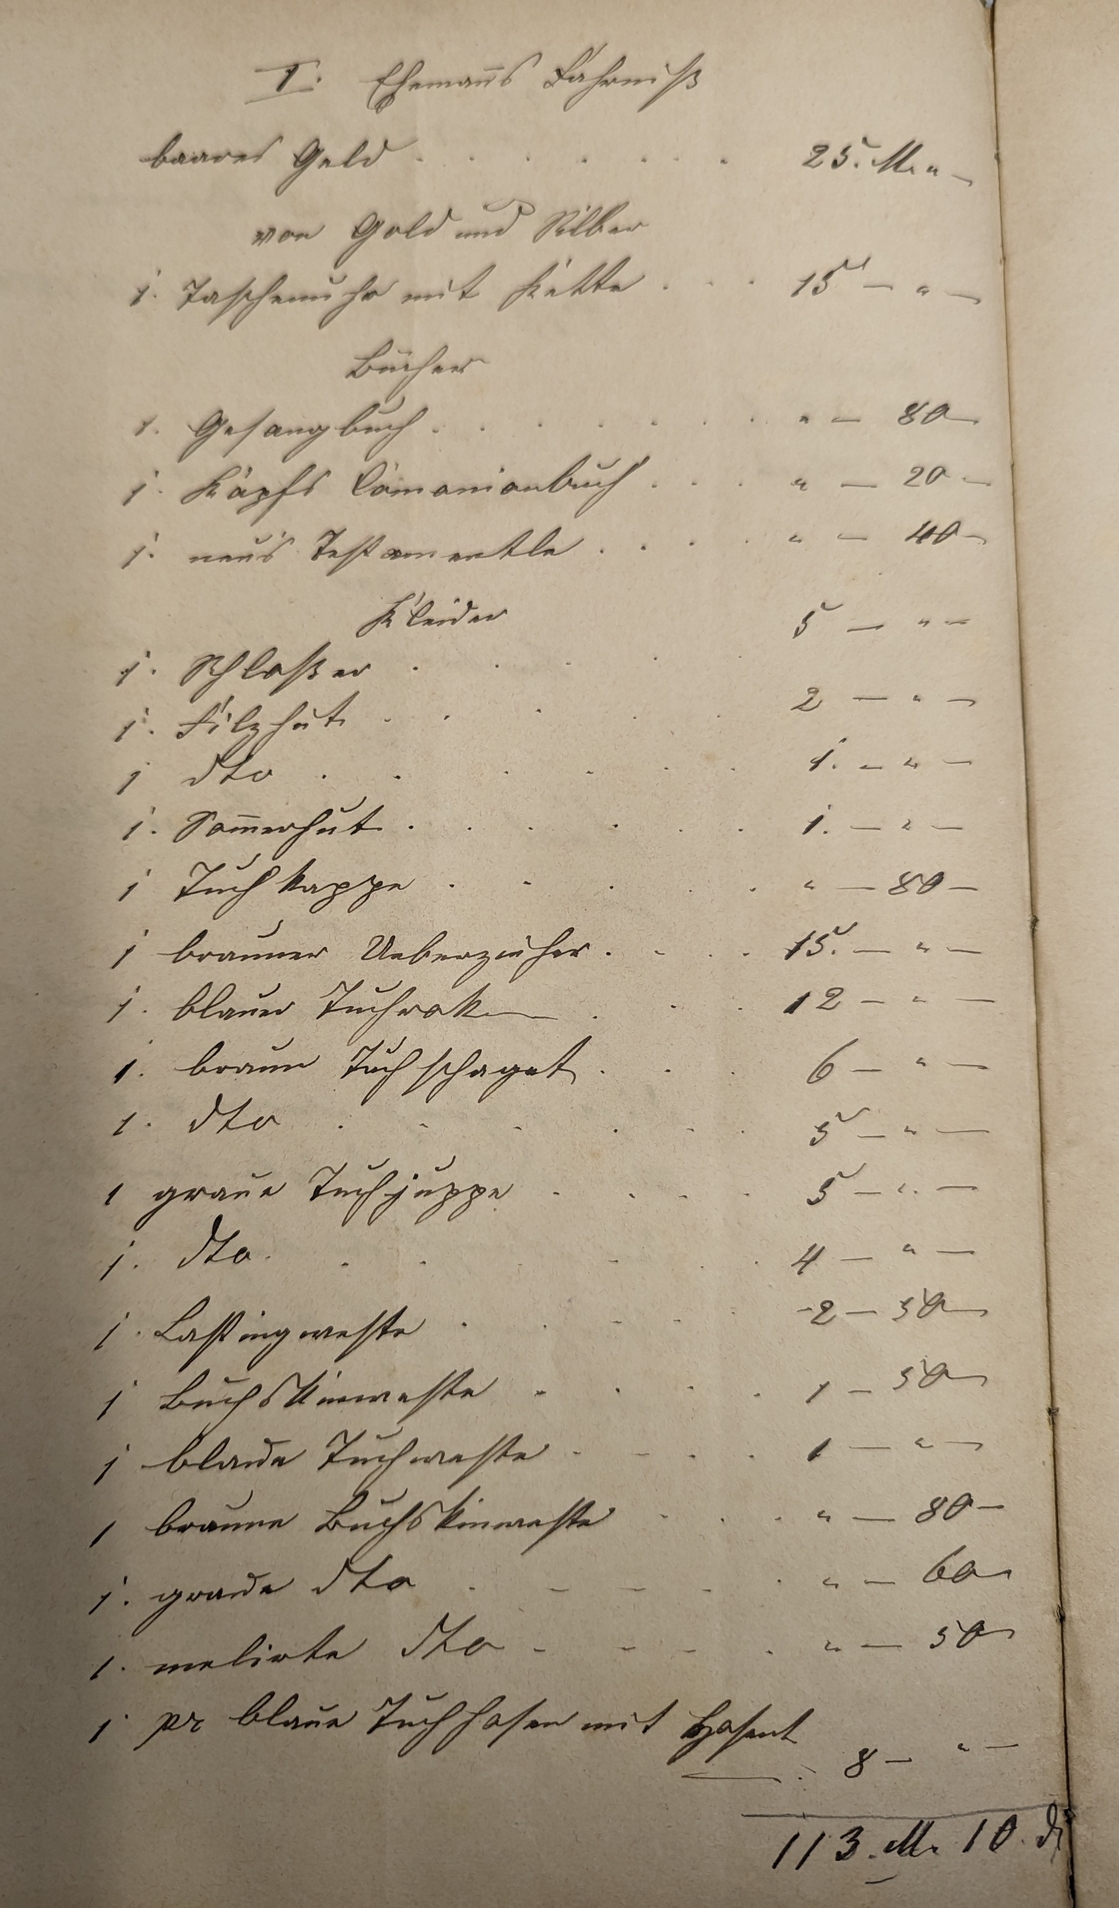 I. Ehemanns Fahrniß
baares Geld . . . . . . . 25. M. " —
von Gold und Silber
1. Taschenuhr mit Kette . . . 15 — " —
Bücher
1. Gesangbuch . . . . . . . " — 80 —
1. Kapfs Comonionbuch . . . " — 20 —
1. neus Testamentle . . . . " — 40 —
Kleider
1. Schloßer . . . . 5 — " —
1. Filzhut . . . . 2 — " —
1 dto . . . . . 1. — " —
1. Som̄erhut . . . . . 1. — " —
1 Tuchkappe . . . . . " — 80 —
1 brauner Ueberzieher . . . . 15. — " —
1. blauer Tuchrok . . . 12 — " —
1. braun Tuchschaget . . . 6 — " —
1. dto . . . . . . 5 — " —
1 graue Tuchjuppe . . . . 5 — " —
1. dto . . . . . 4 — " —
1. Lastingweste . . . . . 2 — 50 —
1 Buchskinweste . . . . 1 — 50 —
1 blaue Tuchweste . . . . 1 — " —
1 braune Buchskinweste . . . . " — 80 —
1. graue dto . . . . . " — 60 —
1. melirte dto . . . . . " — 50 —
1 pr blaue Tuchhosen mit
8 — " —
113. M. 10. d